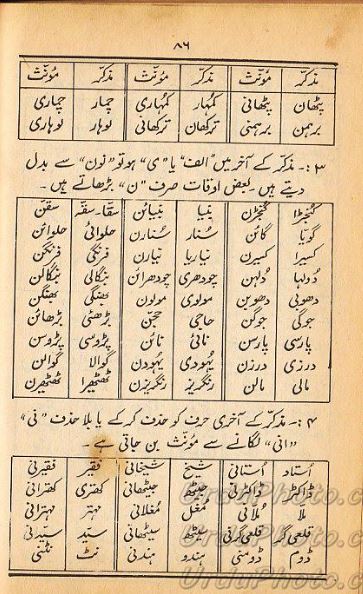 ۸۶
مذکر مؤنث مذکر مؤنث مذکر مؤنث
پٹھان پٹھانی کمہار کمہاری چمار چماری
برہمن برہمنی ترکھان ترکھانی لوہار لوہاری
۳:۔ مذکر کے آخر میں "الف" یا "ی" ہو تو "نون" سے بدل
دیتے ہیں۔ بعض اوقات صرف "ن" بڑھاتے ہیں۔
کنجڑا کنجڑن بنیا بنیائن سقا۔ سقہ سقن
گویا گائن سُنار سُنارن حلوائی حلوائن
کسیرا کسیرن نیاریا نیارن فرنگی فرنگن
دُولہا دُلہن چودھری چودھرائن بنگالی بنگالن
دھوبی دھوبن مولوی مولون بھنگی بھنگن
جوگی جوگن حاجی حجن بڑھئی بڑھائن
پارسی پارسن نائی نائن پڑوسی پڑوسن
درزی درزن یہودی یہودن گوالا گوالن
مالی مالن رنگریز رنگریزن ٹھٹھیرا ٹھٹھیرن
۴:۔ مذکر کے آخری حرف کو حذف کر کے یا بلا حذف "نی"
"انی" لگانے سے مؤنث بن جاتی ہے۔
اُستاد اُستانی شیخ شیخانی فقیر فقیرنی
ڈاکٹر ڈاکٹرنی جیٹھ جیٹھانی کھتری کھترانی
مُلّا مُلّانی مغل مغلانی مہتر مہترانی
قلعی گر قلعی گرنی سیٹھ سیٹھانی سید سیدنی
ڈوم ڈومنی ہندو ہندنی نٹ نٹنی
UrduPhoto.com
UrduPhoto.com
UrduPhoto.com